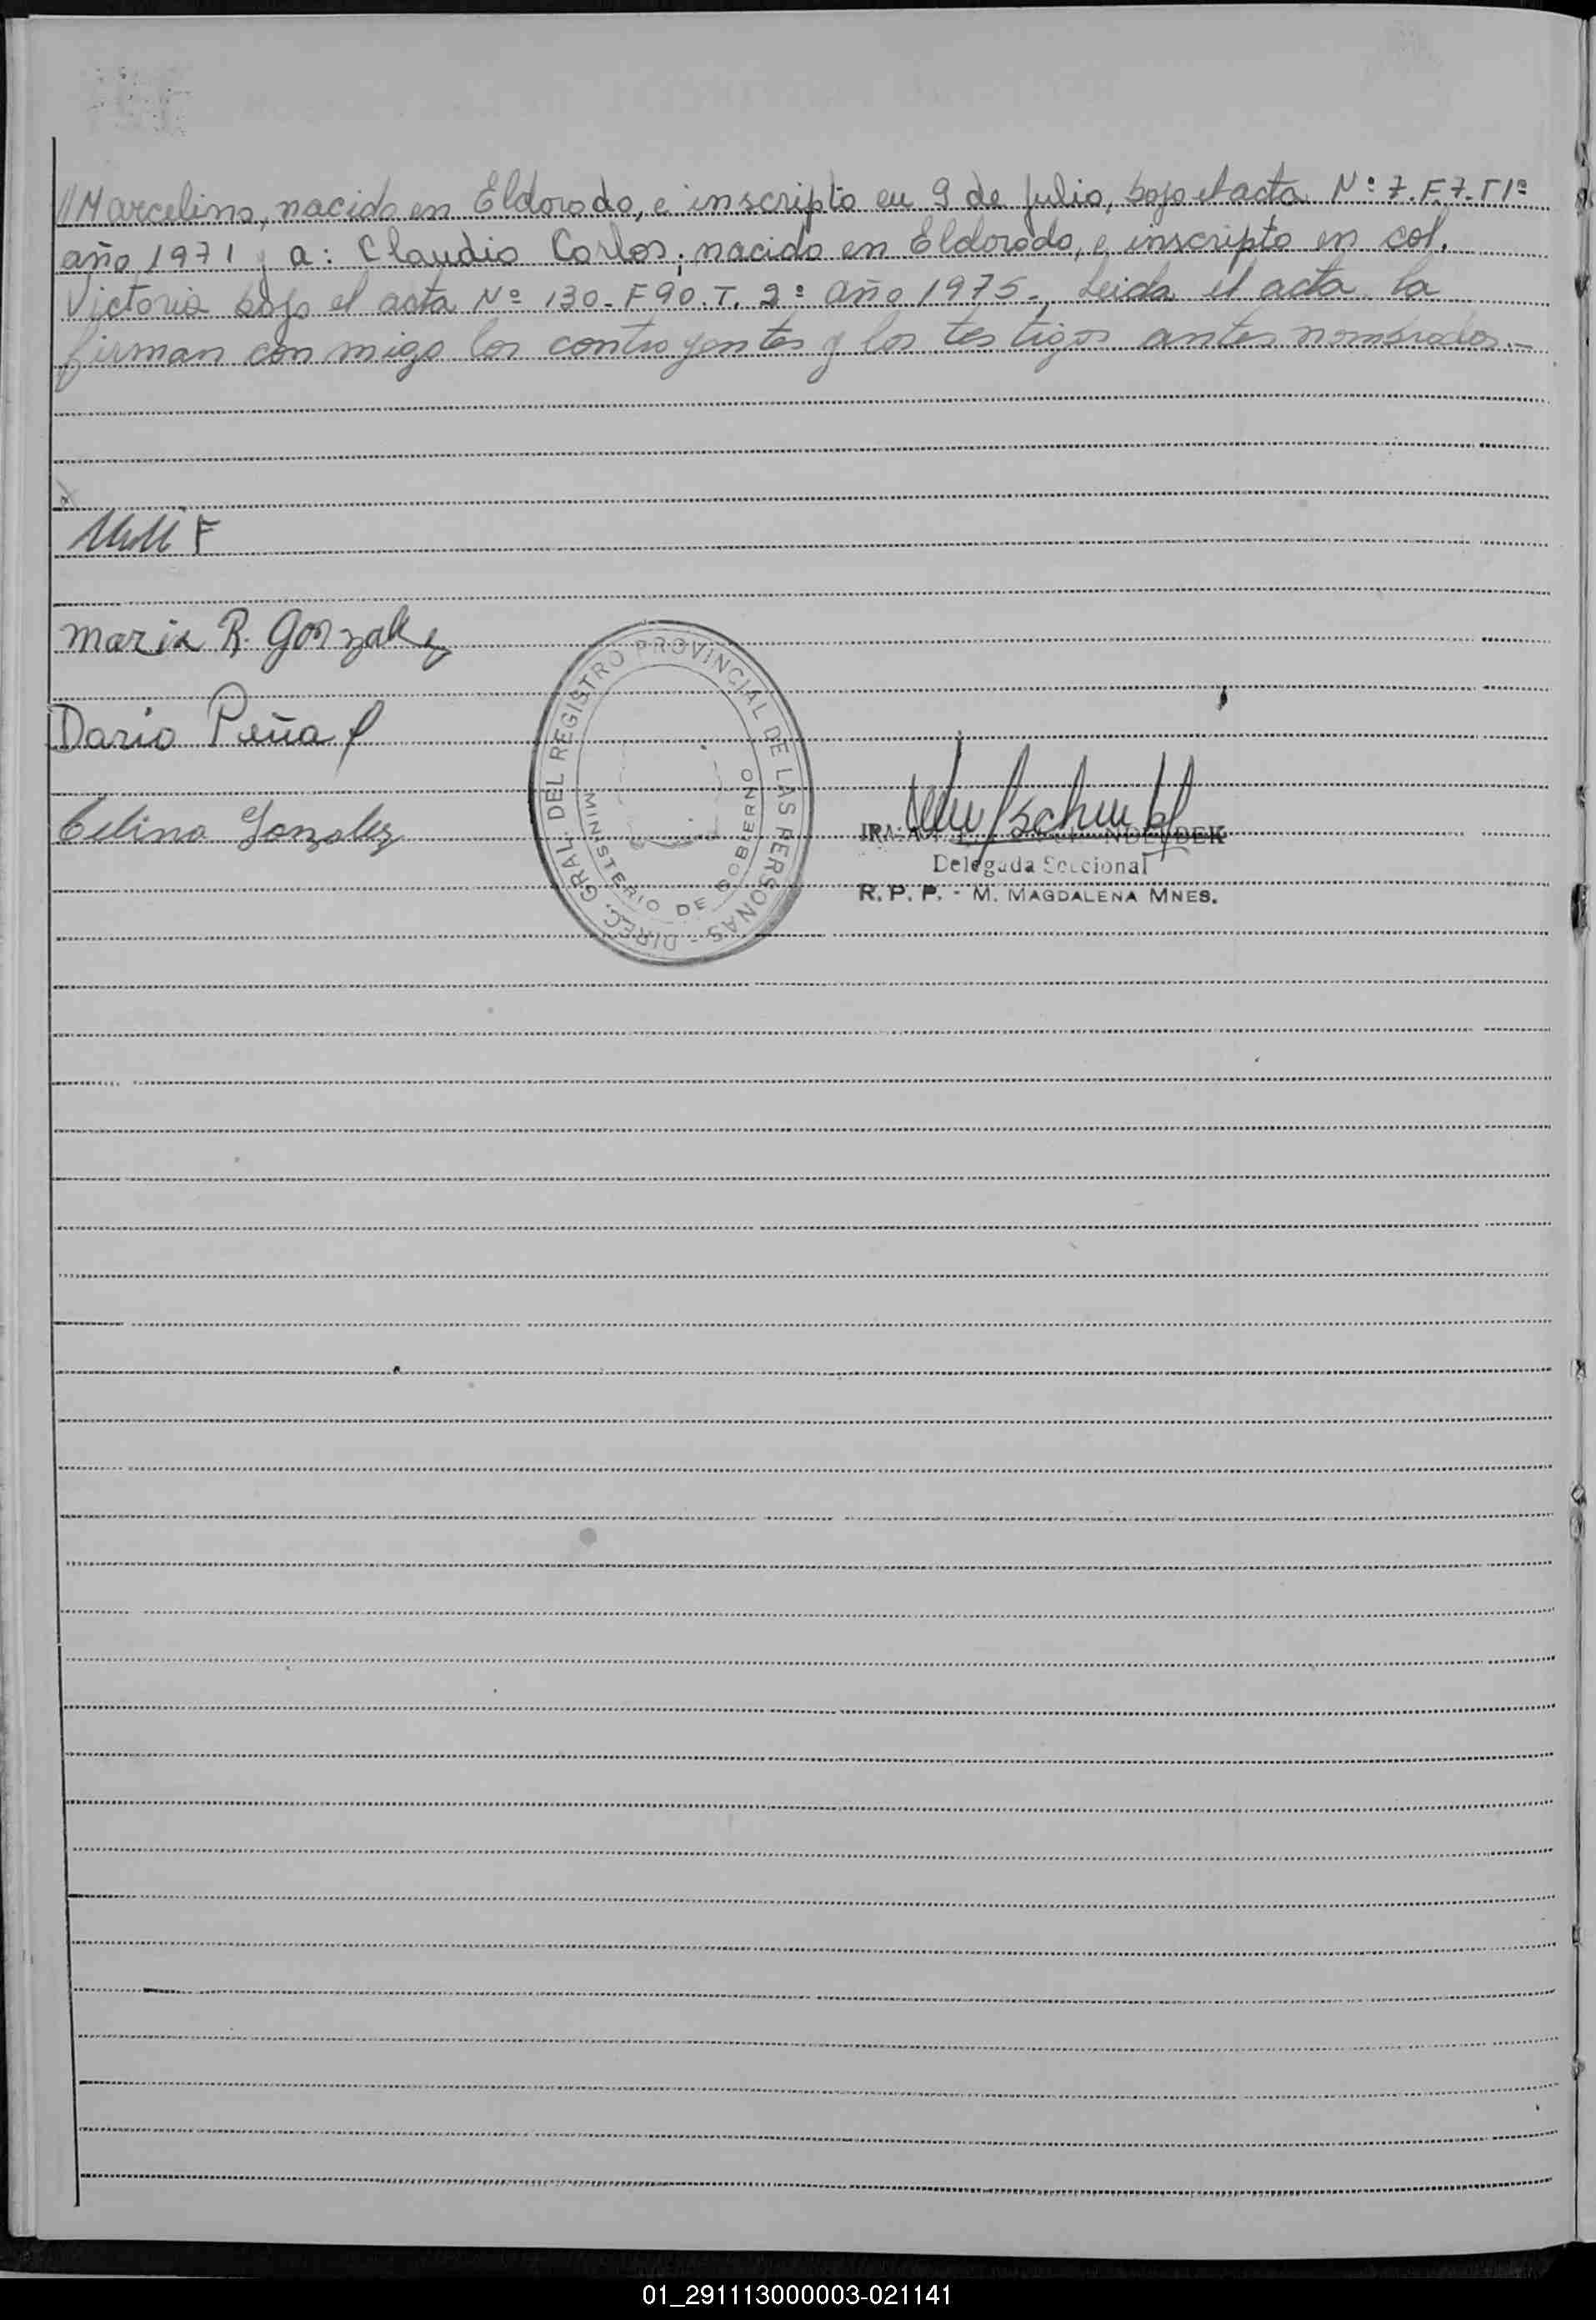 //Marcelino, nacido en Eldorado, e inscripto en 9 de Julio, bajo el acta Nº 7. F. 7. T 1º
año 1971 y a: Claudio Carlos; nacido en Eldorado, e inscripto en col.
Victoria bajo el acta Nº 130. F 90. T. 2º año 1975-. Leida el acta la
firman con migo los contrayentes y los testigos antes nombrados.-
F
maria R. Gonzalez
Dario Peña
Celina Gonzalez
DIREC. GRAL. DEL REGISTRO PROVINCIAL DE LAS PERSONAS -
MINISTERIO DE GOBIERNO
Delegada Seccional
R. P. P. - M. MAGDALENA MNES.
01_291113000003-021141